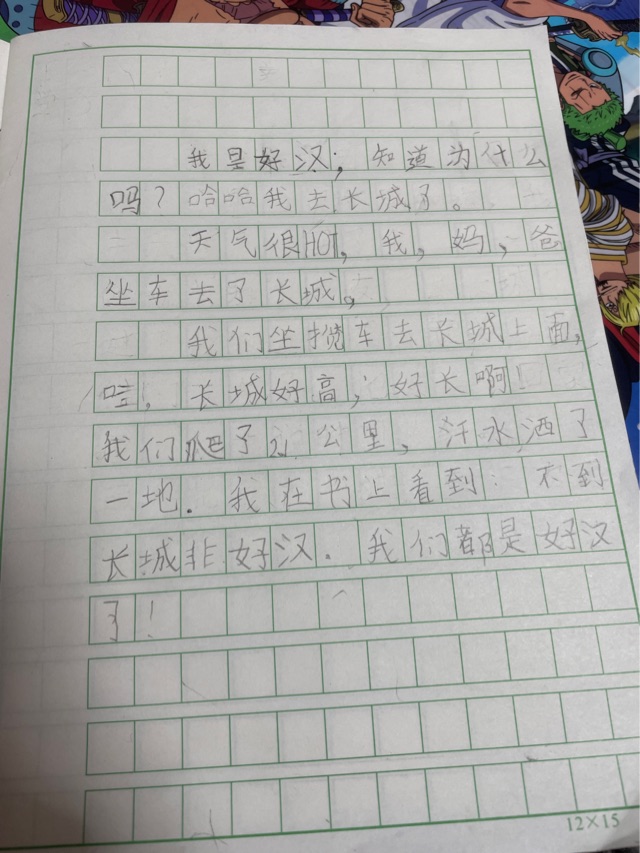 我是好汉；知道为什么
吗？哈哈我去长城了。
天气很HOT，我，妈，爸
坐车去了长城。
我们坐揽车去长城上面，
哇，长城好高，好长啊！
我们爬了21公里，汗水洒了
一地．我在书上看到：不到
长城非好汉．我们都是好汉
了！
12×15